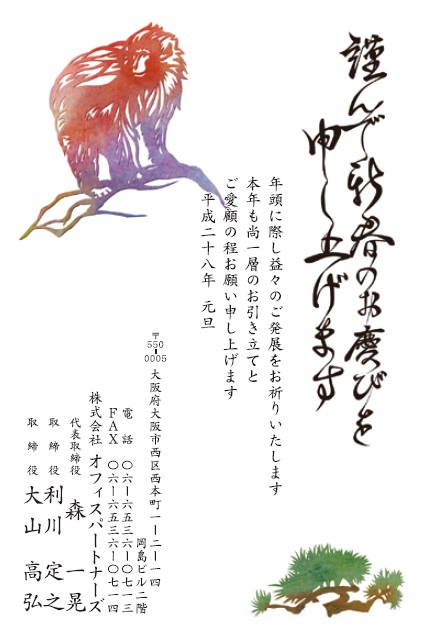 謹んで新春のお慶びを
申し上げます
年頭に際し益々のご発展をお祈りいたします
本年も尚一層のお引き立てと
ご愛顧の程お願い申し上げます
平成二十八年 元旦
〒550-0005 大阪府大阪市西区西本町一ー二ー一四
岡島ビル二階
電話 〇六ー六五三六ー〇七一三
FAX 〇六ー六五三六ー〇七一四
株式会社 オフィスパートナーズ
代表取締役 森 一晃
取締役 利川 定之
取締役 大山 高弘